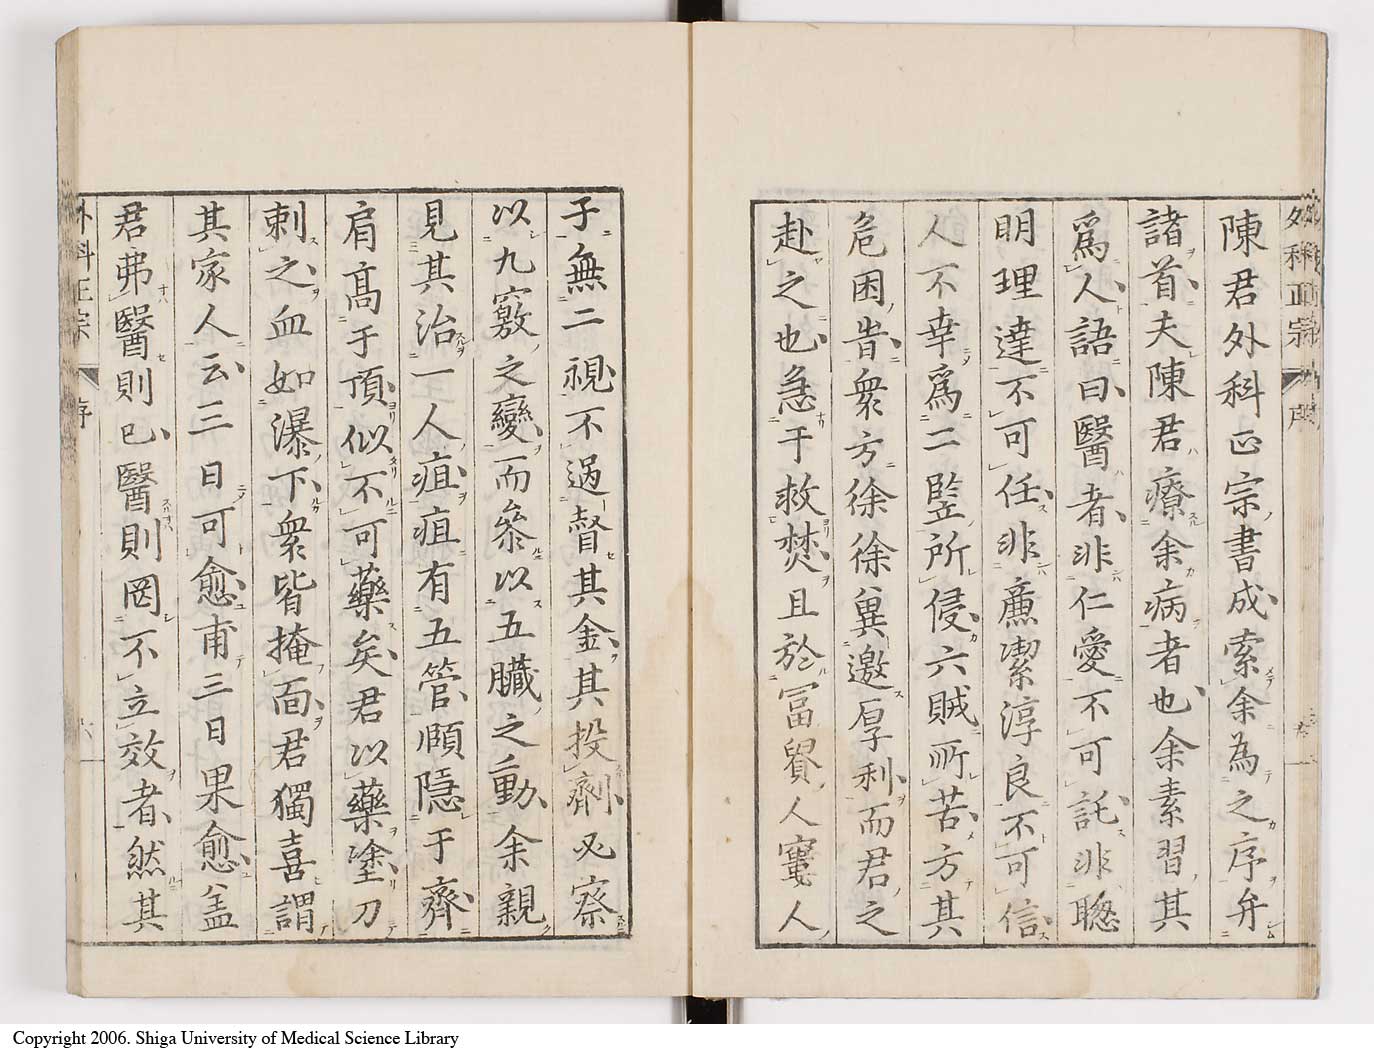 陳君外科正宗書成索余為之序弁
諸首夫陳君療余病者也余素習其
為人語曰醫者非仁愛不可託非聰
明理達不可任非廉潔淳良不可信
人不幸為二豎所侵六賊所苦方其
危困告衆方徐徐巽邀厚利而君之
赴之也急于救焚且於冨貧人窶人
子無二視不過督其金其投劑必察
以九竅之變而參以五臟之動余親
見其治一人疽疽有五管頤隱于齊
肩高于頂似不可藥矣君以藥塗刀
刺之血如瀑下衆皆掩面君獨喜謂
其家人云三日可愈甫三日果愈盖
君弗醫則已醫則罔不立效者然其
外科正宗 序
Copyright 2006. Shiga University of Medical Science Library